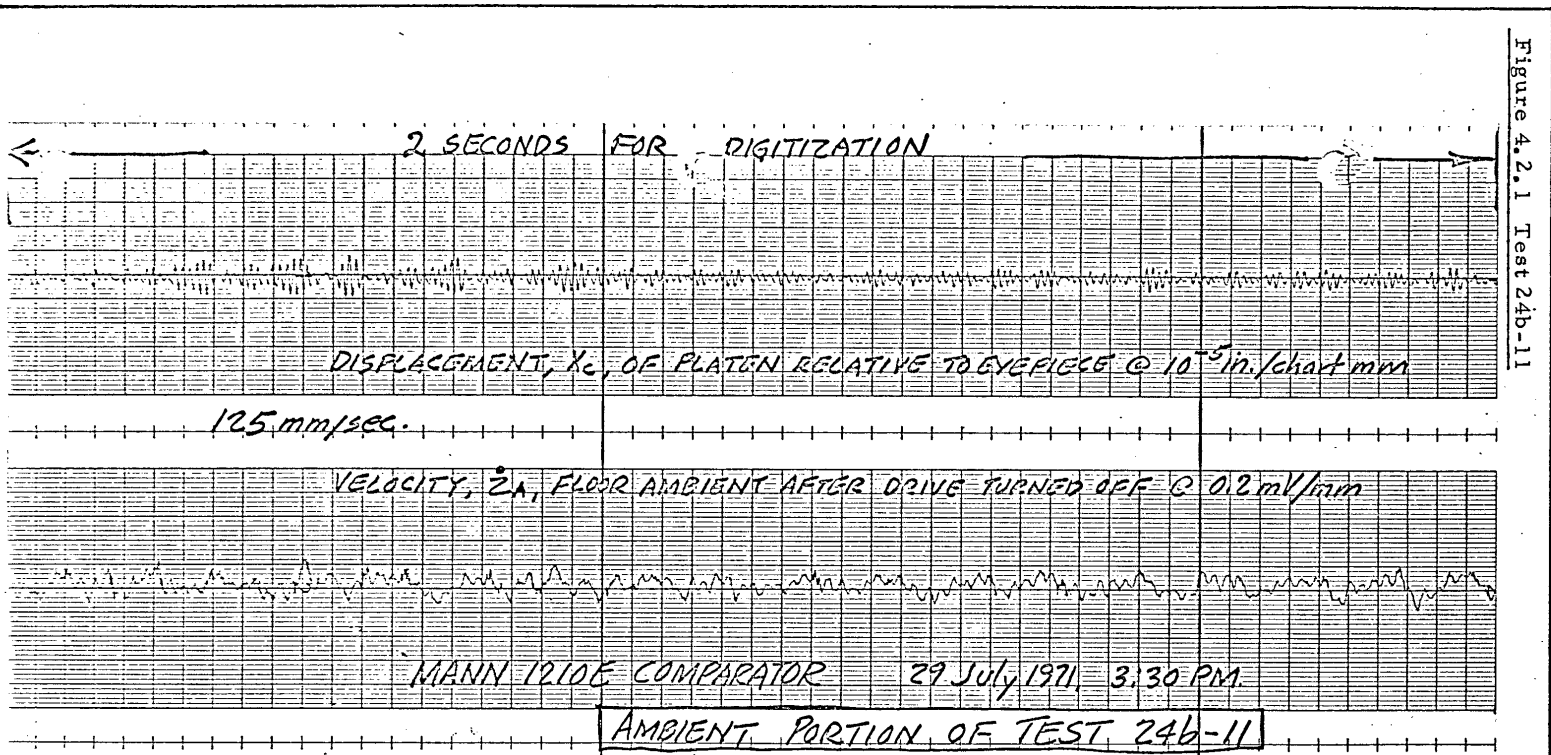 Figure 4.2.1 Test 24b-11
2 SECONDS FOR DIGITIZATION
DISPLACEMENT, Xc, OF PLATEN RELATIVE TO EYEPIECE @ 10⁻⁵ in./chart mm
125 mm/sec.
VELOCITY, ŻA, FLOOR AMBIENT AFTER DRIVE TURNED OFF @ 0.2 mV/mm
MANN 1210E COMPARATOR 29 July 1971, 3:30 PM.
AMBIENT PORTION OF TEST 24b-11